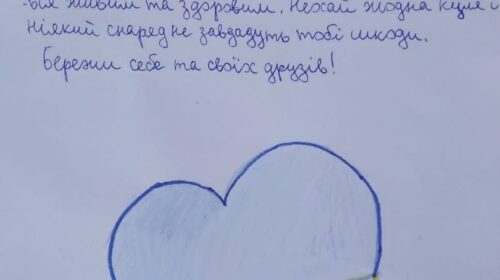 -вся живим та здоровим. Нехай жодна куля і
ніякий снаряд не завдадуть тобі шкоди.
Бережи себе та своїх друзів!